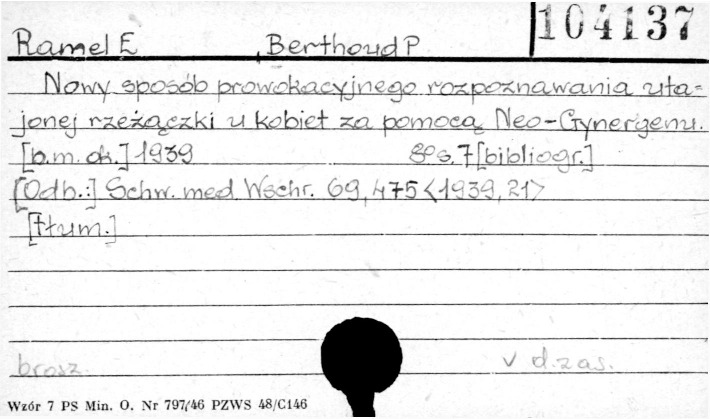 104137
Ramel E , Berthoud P.
Nowy sposób prowokacyjnego rozpoznawania uta=
jonej rzeżączki u kobiet za pomocą Neo-Gynergenu.
[b.m. ok.] 1939 s. 7 [bibliogr.]
[Odb.:] Schw. med. Wschr. 69, 475 <1939, 21>
[tłum.]
brosz. v d. zas.
Wzór 7 PS Min. O. Nr 797/46 PZWS 48/C146